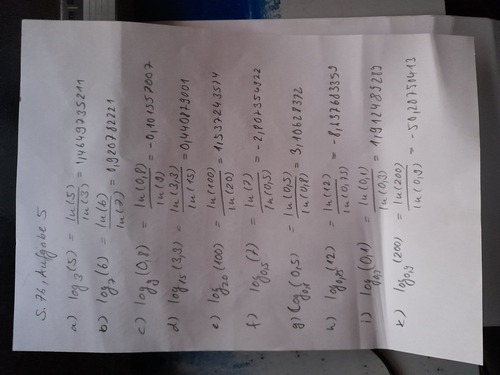 S. 76, Aufgabe 5
a) log₃(5) = ln(5)/ln(3) = 1,4649735211
b) log₇(6) = ln(6)/ln(7) = 0,920782221
c) log₉(0,8) = ln(0,8)/ln(9) = -0,101557007
d) log₁₅(3,3) = ln(3,3)/ln(15) = 0,440879001
e) log₂₀(100) = ln(100)/ln(20) = 1,537243514
f) log₀,₅(7) = ln(7)/ln(0,5) = -2,807354922
g) log₀,₈(0,5) = ln(0,5)/ln(0,8) = 3,10628372
h) ln(12) = -8,637683359
i) (0,1) = ln(0,1)/ln(0,3) = 1,912489289
k) log₀,₉(200) = ln(200)/ln(0,9) = -50,28750413